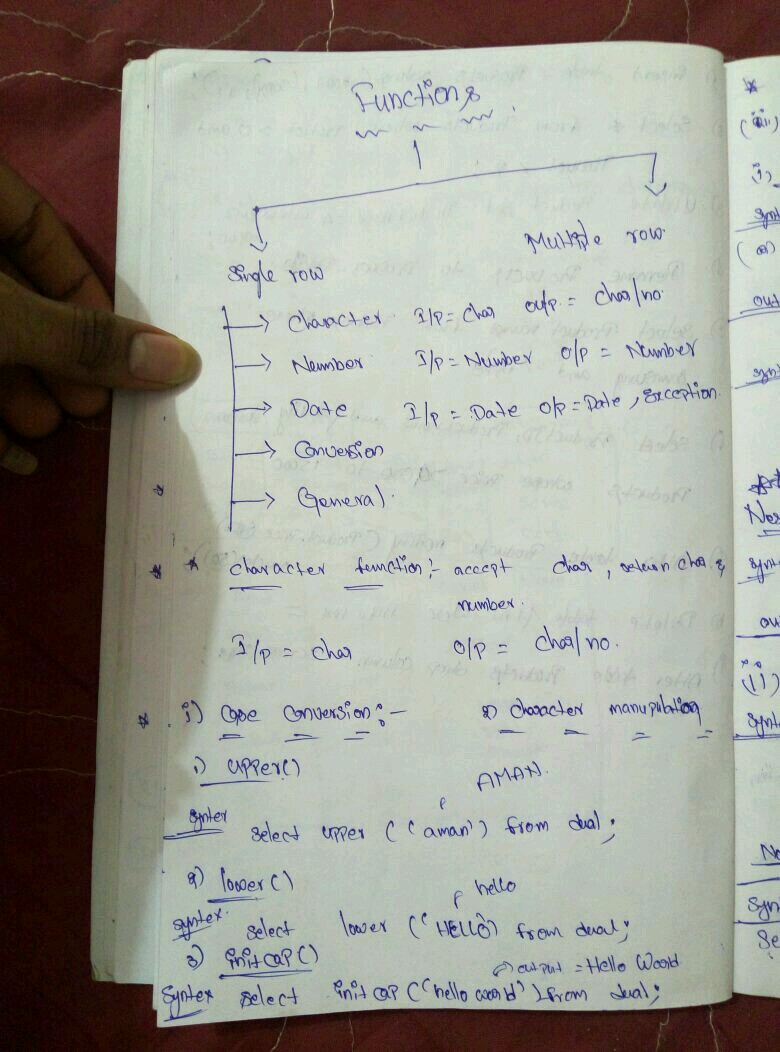 Functions
Multiple row
Single row
→ Character I/p = Char out/p. = Char/no.
→ Number I/p = Number O/p = Number
→ Date I/p = Date O/p = Date, Exception.
→ Conversion
→ General.
* * Character function :- accept char, return char &
number.
I/p = char O/p = char/no.
* i) Case Conversion :- 2) Character manuplation
1) UPPER()
AMAN.
Synter Select upper ('aman') from dual;
2) lower()
hello
Syntex. Select lower ('HELLO') from dual;
3) initcap()
output = Hello World
Syntex Select initcap ('hello world') from dual;
*
i)
Synt
out
synt
Synt
ou
(ii)
Synt
No
Syn
Se